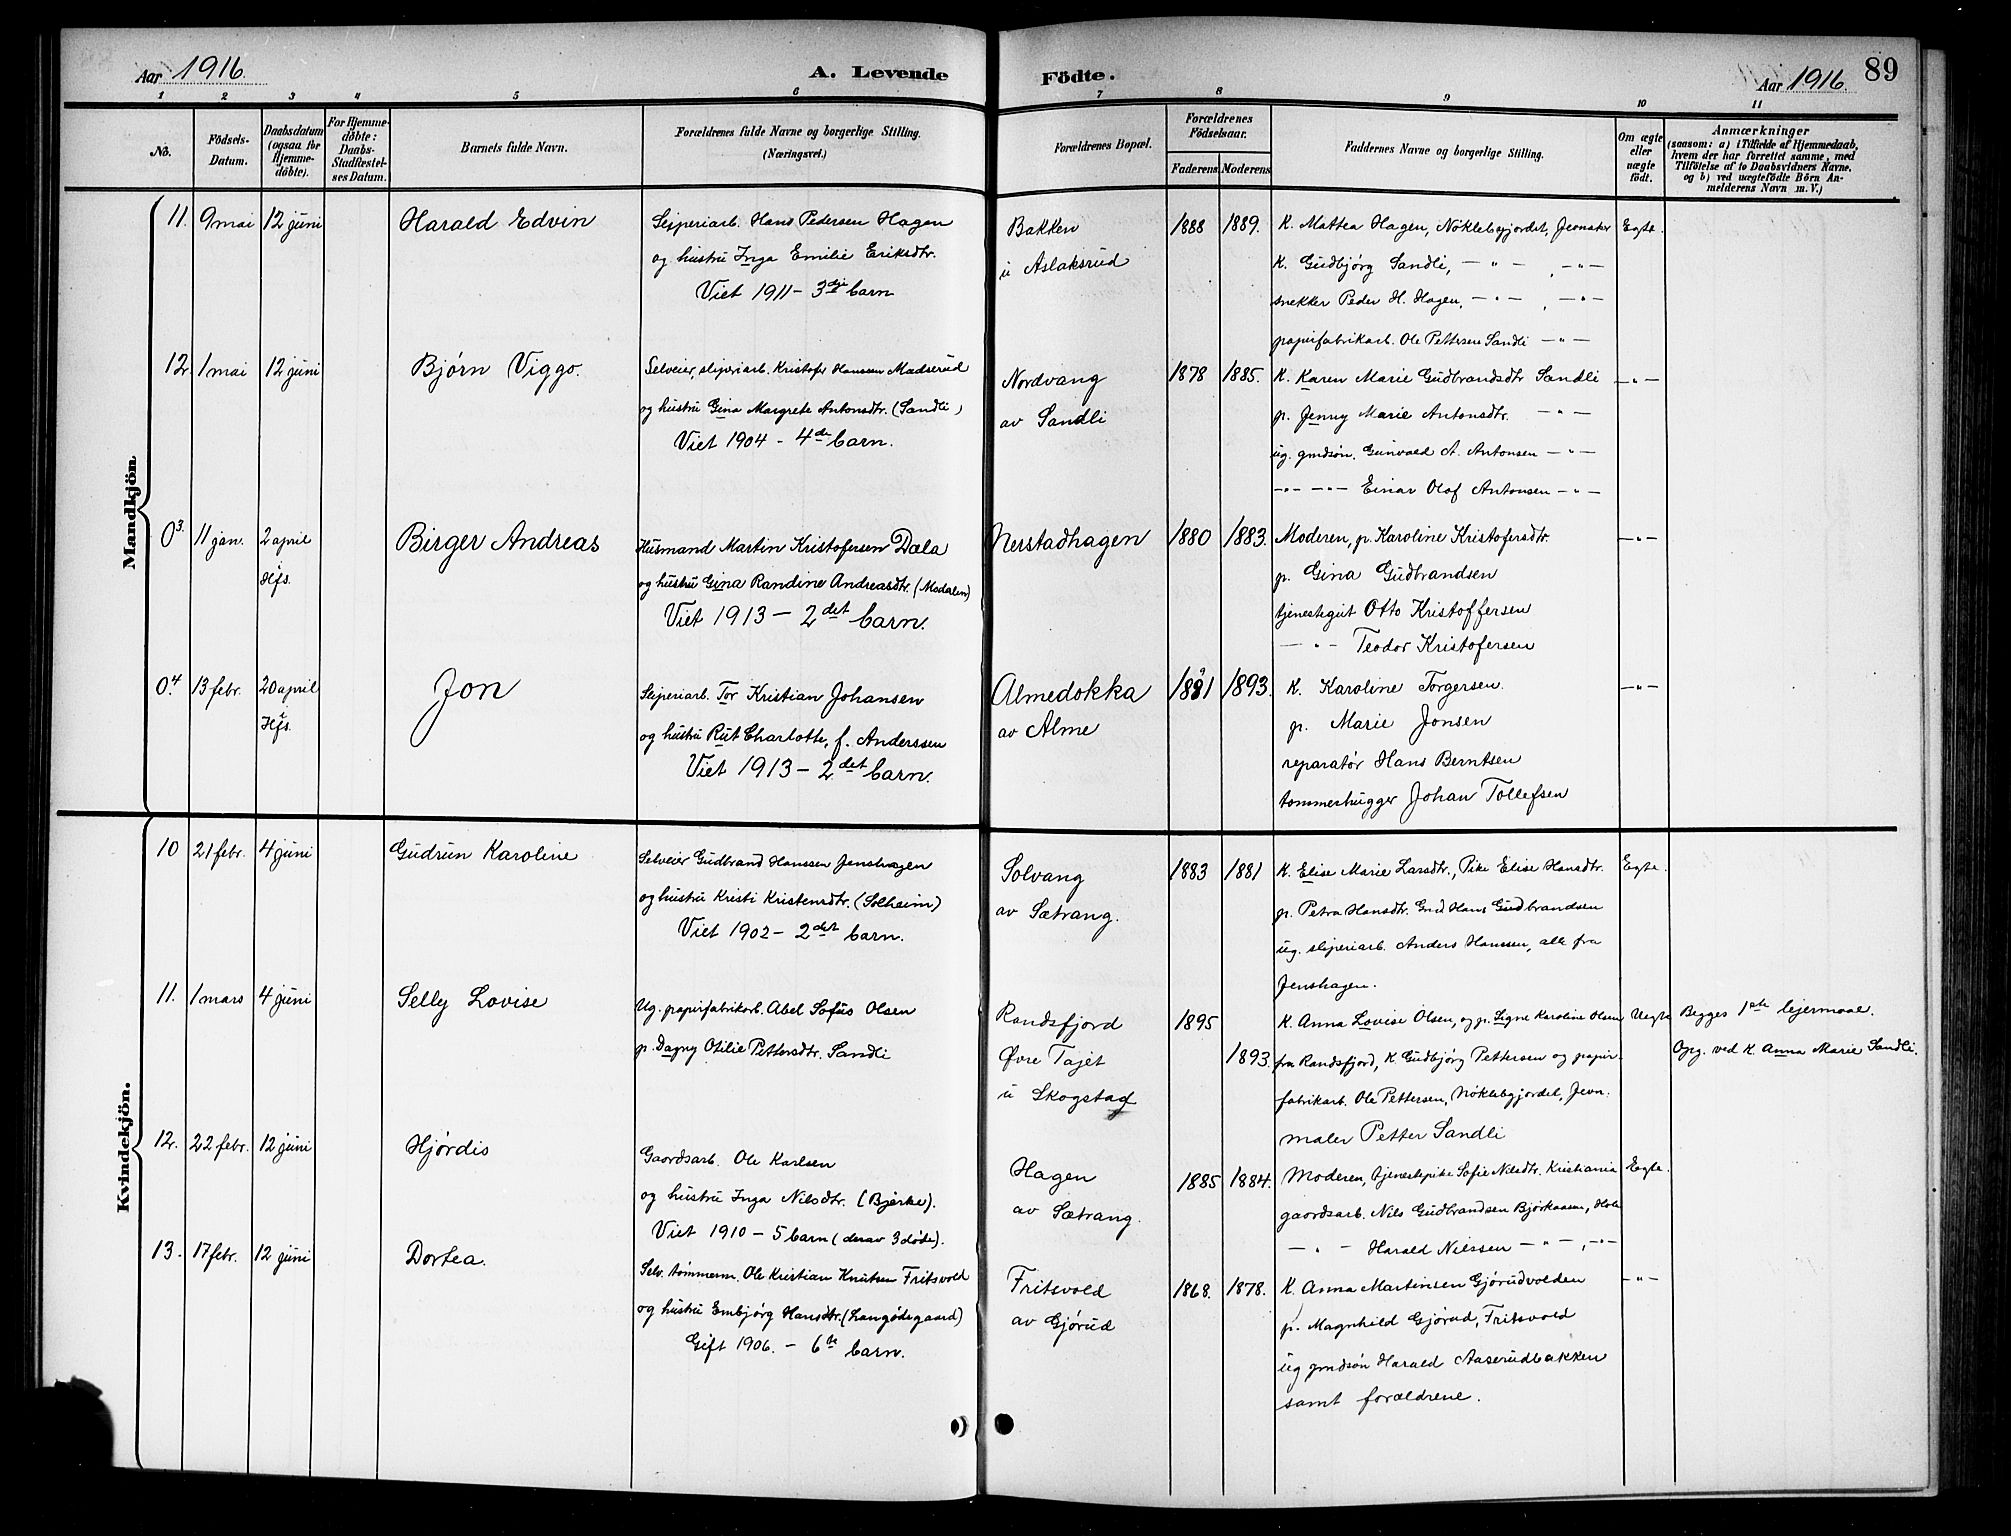 Aar 1916.
A. Levende Födte.
Aar 1916.
89
1 2 3 4 5 6 7 8 9 10 11
No.
Födsels-Datum.
Daabsdatum (ogsaa for Hjemme-döbte).
For Hjemme-döbte: Daabs-Stadfæstel-ses Datum.
Barnets fulde Navn.
Forældrenes fulde Navne og borgerlige Stilling.
(Næringsvei.)
Forældrenes Bopæl.
Forældrenes Födselsaar.
Faderens Moderens
Faddernes Navne og borgerlige Stilling.
Om ægte eller uægte födt.
Anmærkninger
(saasom: a) i Tilfælde af Hjemmedaab, hvem der har forrettet samme, med Tilföielse af to Daabsvidners Navne, og b) ved uægtefödte Börn Anmelderens Navn m. V.)
Mandkjön
11. 9 mai 12 juni Harald Edvin
Sliperiarb. Hans Pedersen Hagen
og hustru Inga Emilie Eriksdtr.
Viet 1911 - 3die barn
Bakken
u Aslaksrud
1888 1889.
K. Mattea Hagen, Nöklebygjordet, Jevnaker
K. Gudbjörg Sandli, — " — , — " —
snekker Peder H. Hagen, — " — , — " —
papirfabrikarb. Ole Pettersen Sandli — " —
Egte.
12. 1 mai 12 juni Bjørn Viggo.
Selveier, sliperiarb. Kristofer Hanssen Madserud
og hustru Gina Margrete Antonsdtr. (Sandli)
Viet 1904 - 4de barn.
Nordvang
av Sandli
1878 1885.
K. Karen Marie Gudbrandsdtr Sandli
p. Jenny Marie Antonsdtr. — " —
ug. gmdsøn. Gunvald A. Antonsen — " —
— " — — " — Einar Olaf Antonsen — " —
— " —
03. 11 jan. 2 april Hfs. Birger Andreas
Husmand Martin Kristofersen Dæla
og hustru Gina Randine Andreasdtr. (Modalen)
Viet 1913 - 2det barn.
Nerstadhagen
1880 1883.
Moderen, p. Karoline Kristofersdtr.
p. Gina Gudbrandsen
tjenestegut Otto Kristoffersen
— " — Teodor Kristofersen
— " —
04. 13 febr. 20 april Hfs. Jon
Sliperiarb. Tor Kristian Johansen
og hustru Rut Charlotte, f. Anderssen
Viet 1913 - 2det barn.
Almedokka
av Alme
1893.
K. Karoline Torgersen.
p. Marie Jonsen
reparatør Hans Berntsen
tømmerhugger Johan Tollefsen
— " —
Kvindekjön.
10 21 febr. 4 juni Gudrun Karoline
Selveier Gudbrand Hanssen Jenshagen
og hustru Kristi Kristensdtr. (Solheim)
Viet 1902 - 2det barn.
Solvang
av Sætrang.
1883 1881
K. Elise Marie Larsdtr., Pike Elise Hansdtr.
p. Petra Hansdtr. Gmd Hans Gudbrandsen
ug. sliperiarb. Anders Hanssen, alle fra
Jenshagen.
Egte.
11. 1 mars 4 juni Selly Lovise
Ug. papirfabrikarb. Abel Sofus Olsen
p. Dagny Otilie Pettersdtr. Sandli
Randsfjord
Øvre Tajet
u Skogstad
1895
1893.
K. Anna Lovise Olsen, og p. Signe Karoline Olsen
fra Randsfjord, K. Gudbjörg Pettersen og papir-
fabrikarb. Ole Pettersen, Nöklebygjordet, Jevn.
maler Petter Sandli
Uegte
Begges 1ste lejermaal.
Opg. ved K. Anna Marie Sandli.
12. 22 febr. 12 juni Hjørdis
Gaardsarb. Ole Karlsen
og hustru Inga Nilsdtr. (Bjerke).
Viet 1910 - 5 barn (derav 3 døde).
Hagen
av Sætrang.
1885 1884.
Moderen, tjenestepike Sofie Nilsdtr. Kristiania
gaardsarb. Nils Gudbrandsen Bjørkaasen, Hole
— " — Harald Nilssen — " —, — " —
Egte.
13. 17 febr. 12 juni Dortea.
Selv. tømmerm. Ole Kristian Knutsen Fritsvold
og hustru Embjørg Hansdtr. (Langødegaard)
Gift 1906. - 6te barn.
Fritsvold
av Gjørud
1868. 1878.
K. Anna Martinsen Gjørudvolden
p. Magnhild Gjørud, Fritsvold
ug gmdsøn Harald Aaserudbakken
samt forældrene.
— " —